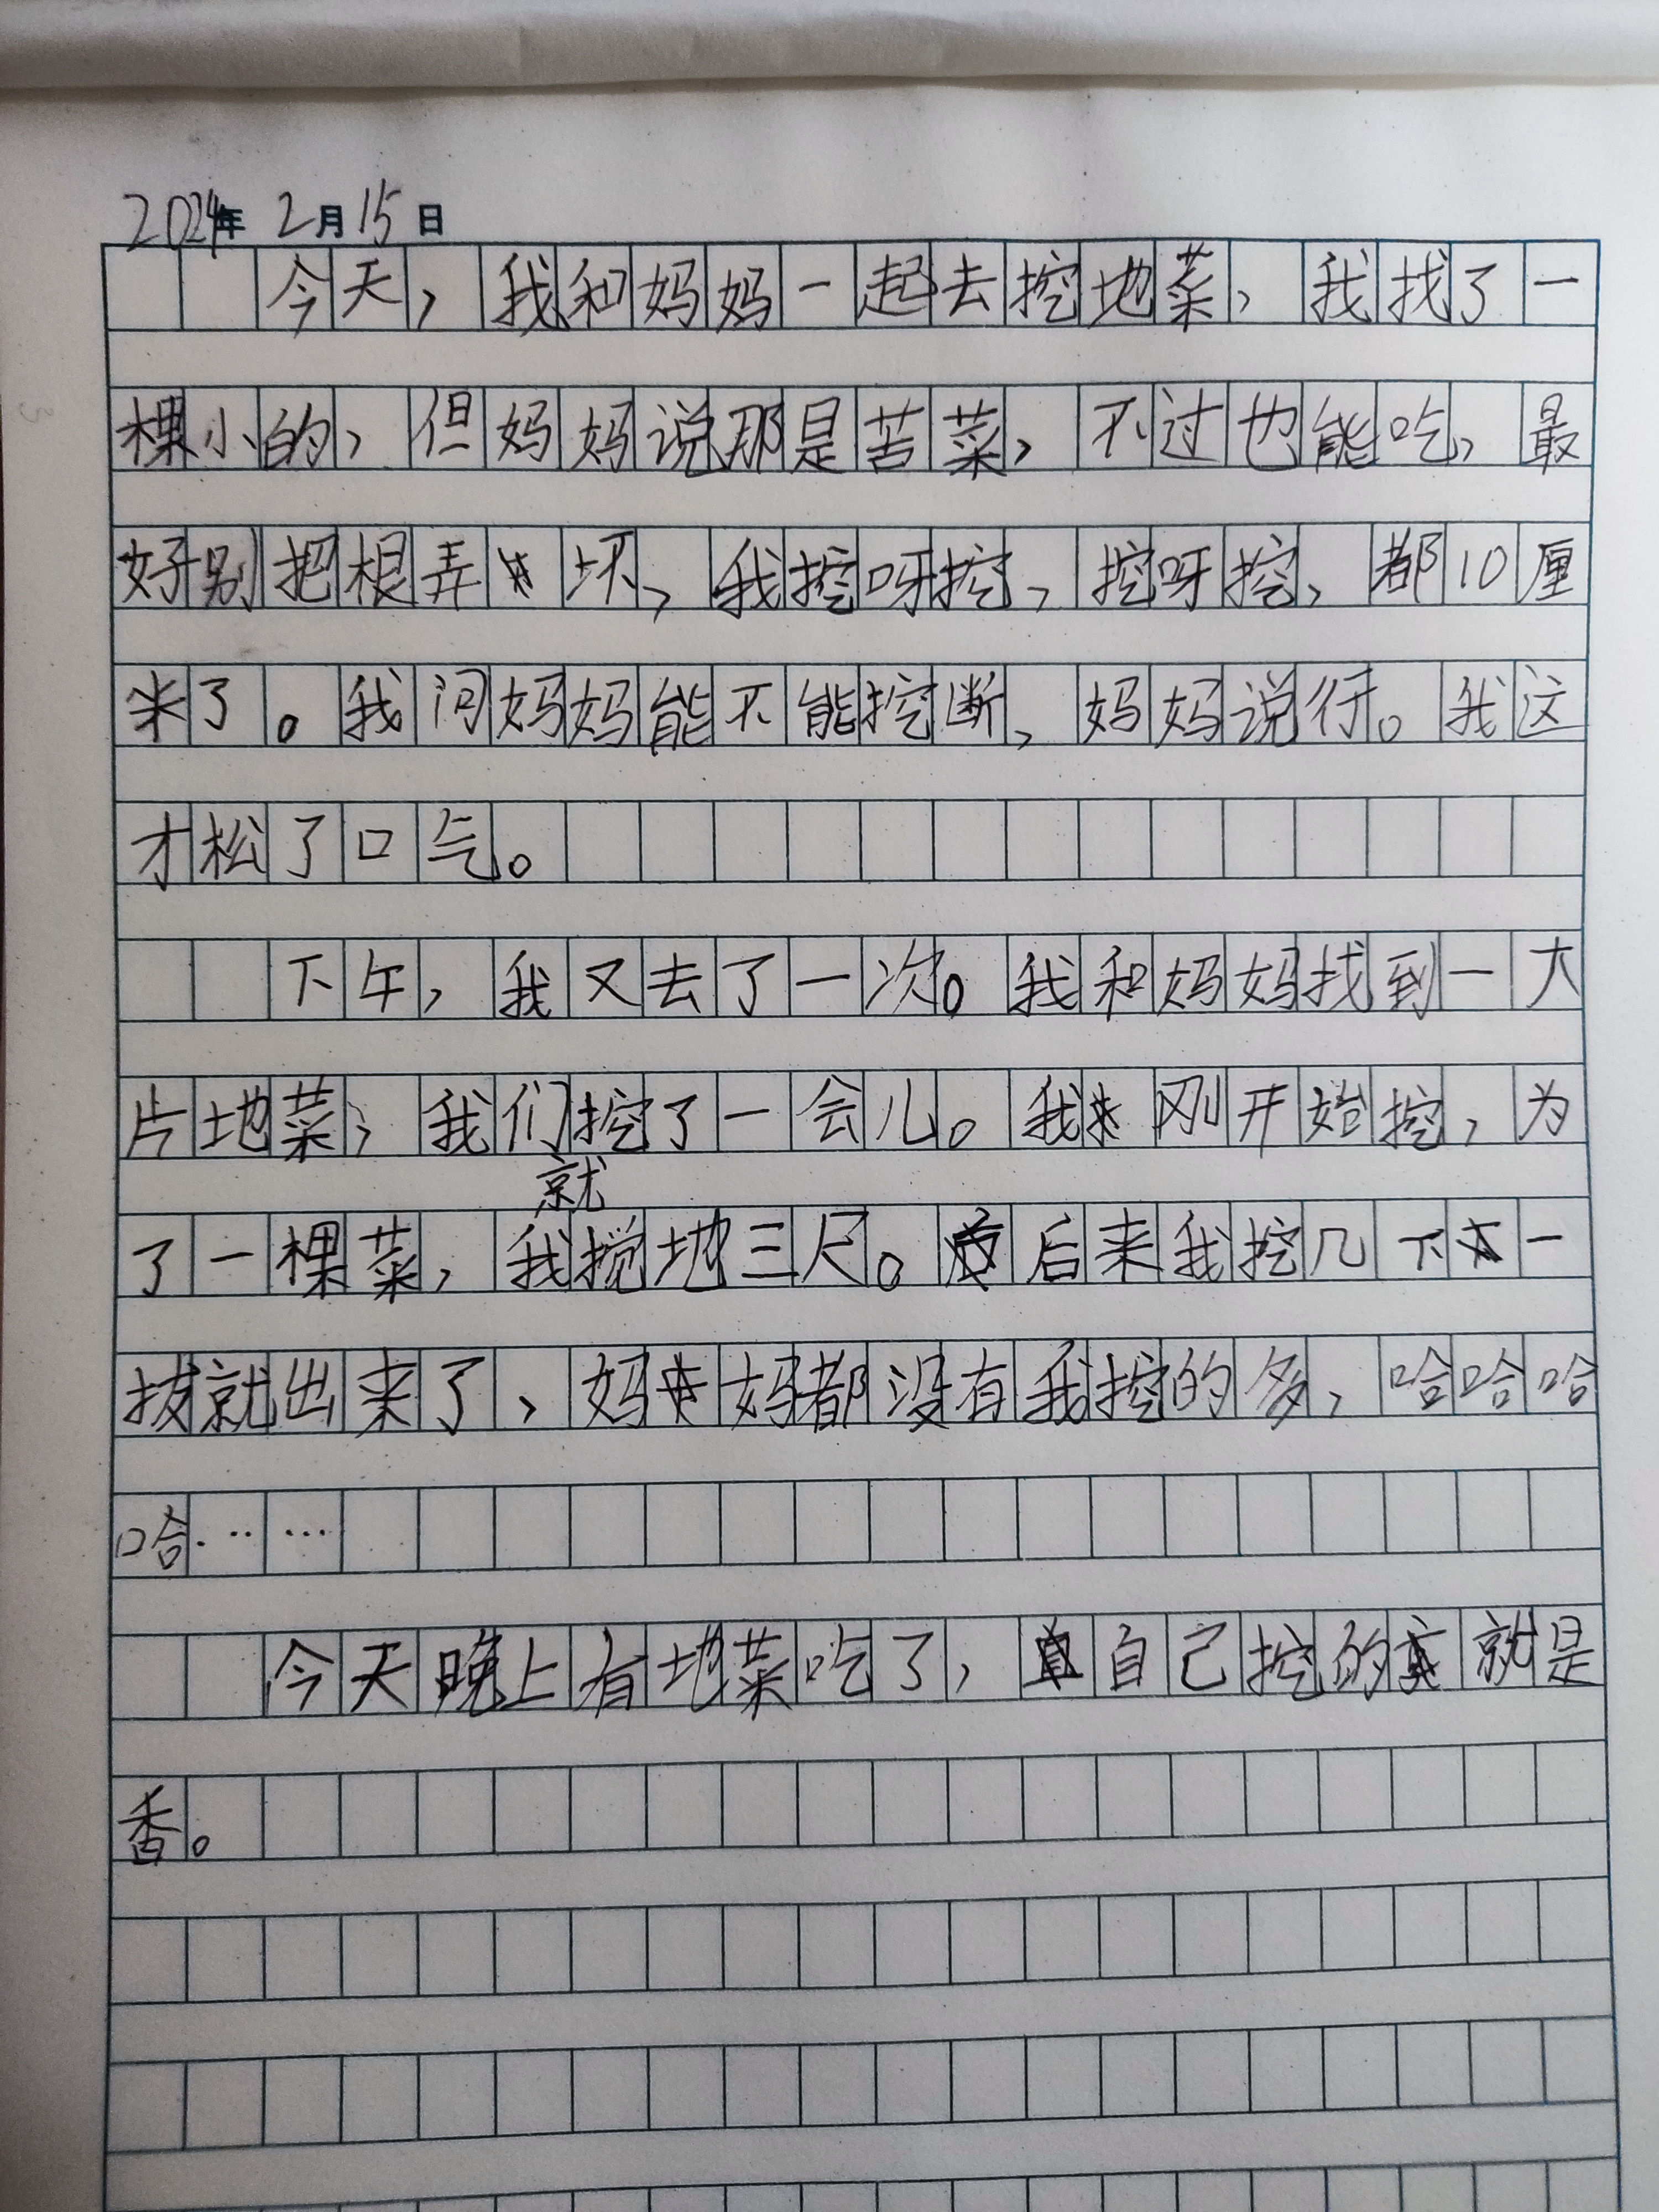 2024年 2月15日
今天，我和妈妈一起去挖地菜，我找了一
棵小的，但妈妈说那是苦菜，不过也能吃，最
好别把根弄坏，我挖呀挖，挖呀挖，都10厘
米了。我问妈妈能不能挖断，妈妈说行。我这
才松了口气。
下午，我又去了一次。我和妈妈找到一大
片地菜，我们挖了一会儿。我刚开始挖，为
了一棵菜，我就搅地三尺。后来我挖几下一
拔就出来了，妈妈都没有我挖的多，哈哈哈
哈……
今天晚上有地菜吃了，自己挖的就是
香。